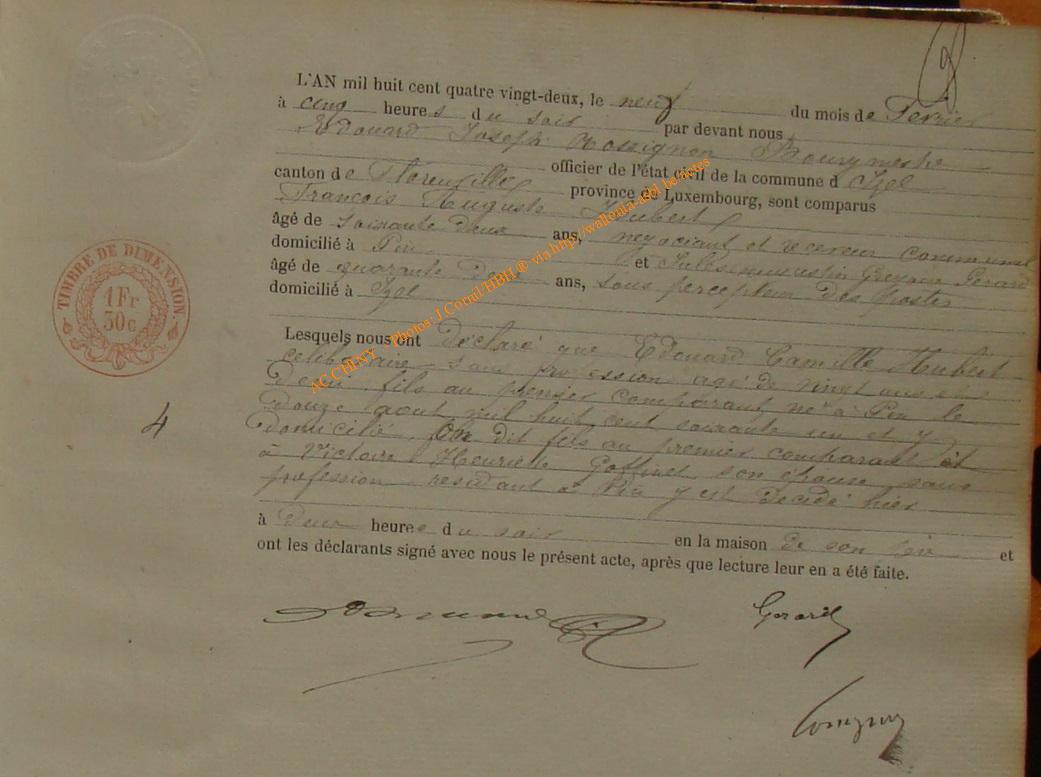 L'AN mil huit cent quatre vingt-deux, le neuf du mois de Fevrier
à cinq heures du soir par devant nous
Edouard Joseph Rossignon Bourgmestre
officier de l'état civil de la commune d Izel
canton de Florenville province de Luxembourg, sont comparus
François Auguste Hubert
âgé de soixante deux ans, négociant et receveur communal
domicilié à Pin et Jules
âgé de quarante ans, sous percepteur des Postes
domicilié à Izel
Lesquels nous ont déclaré que Edouard Camille Hubert
célibataire sans profession agé de vingt ans et
demi fils au premier comparant né à Pin le
douze aout mil huit cent soixante un et y
domicilié, dit fils au premier comparant et
à Victoire Henriette Goffinet son épouse sans
profession résidant à Pin y est décédé hier
à deux heures du soir en la maison de son père et
ont les déclarants signé avec nous le présent acte, après que lecture leur en a été faite.
TIMBRE DE DIMENSION.
1 Fr
30c
4
AC CHINY Photos: J.Cornil/HBH ® via http//wallonia-asbl.be/actes